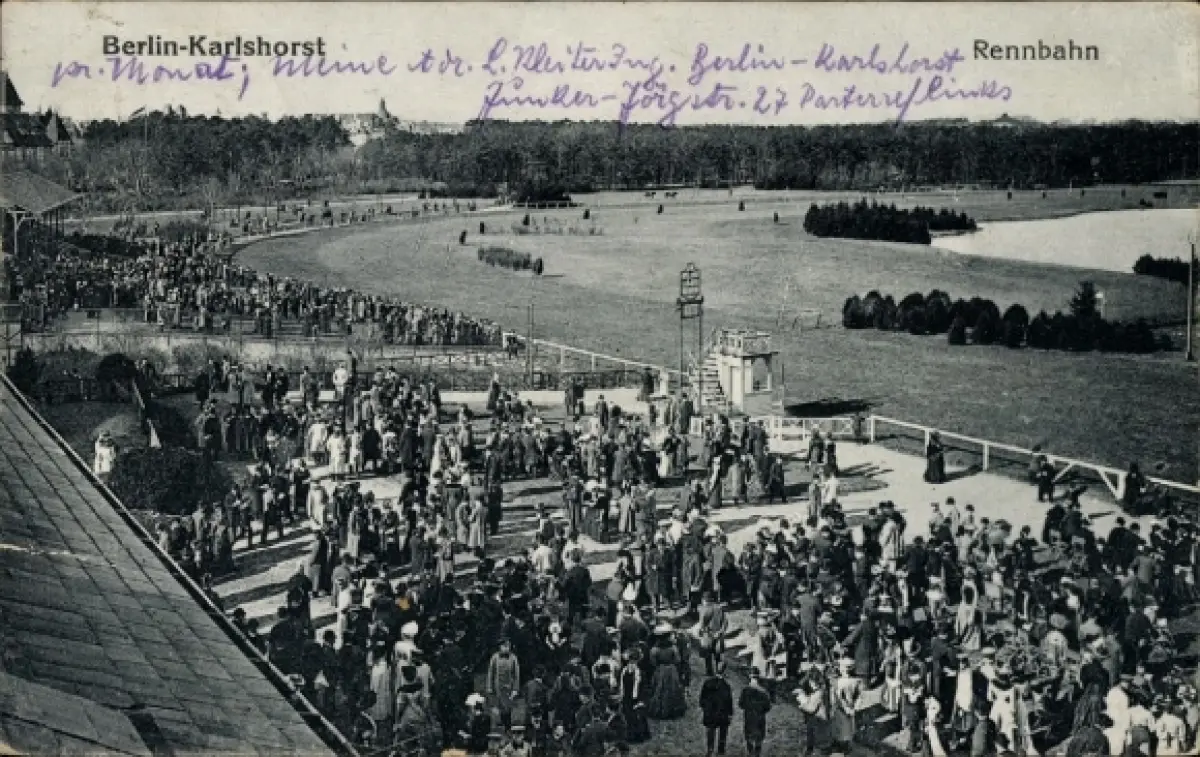 Berlin-Karlshorst
Rennbahn
pr. Monat; Meine Adr. L. Kleiter Ing. Berlin-Karlshorst
Junker-Jörgstr. 27 Parterre links